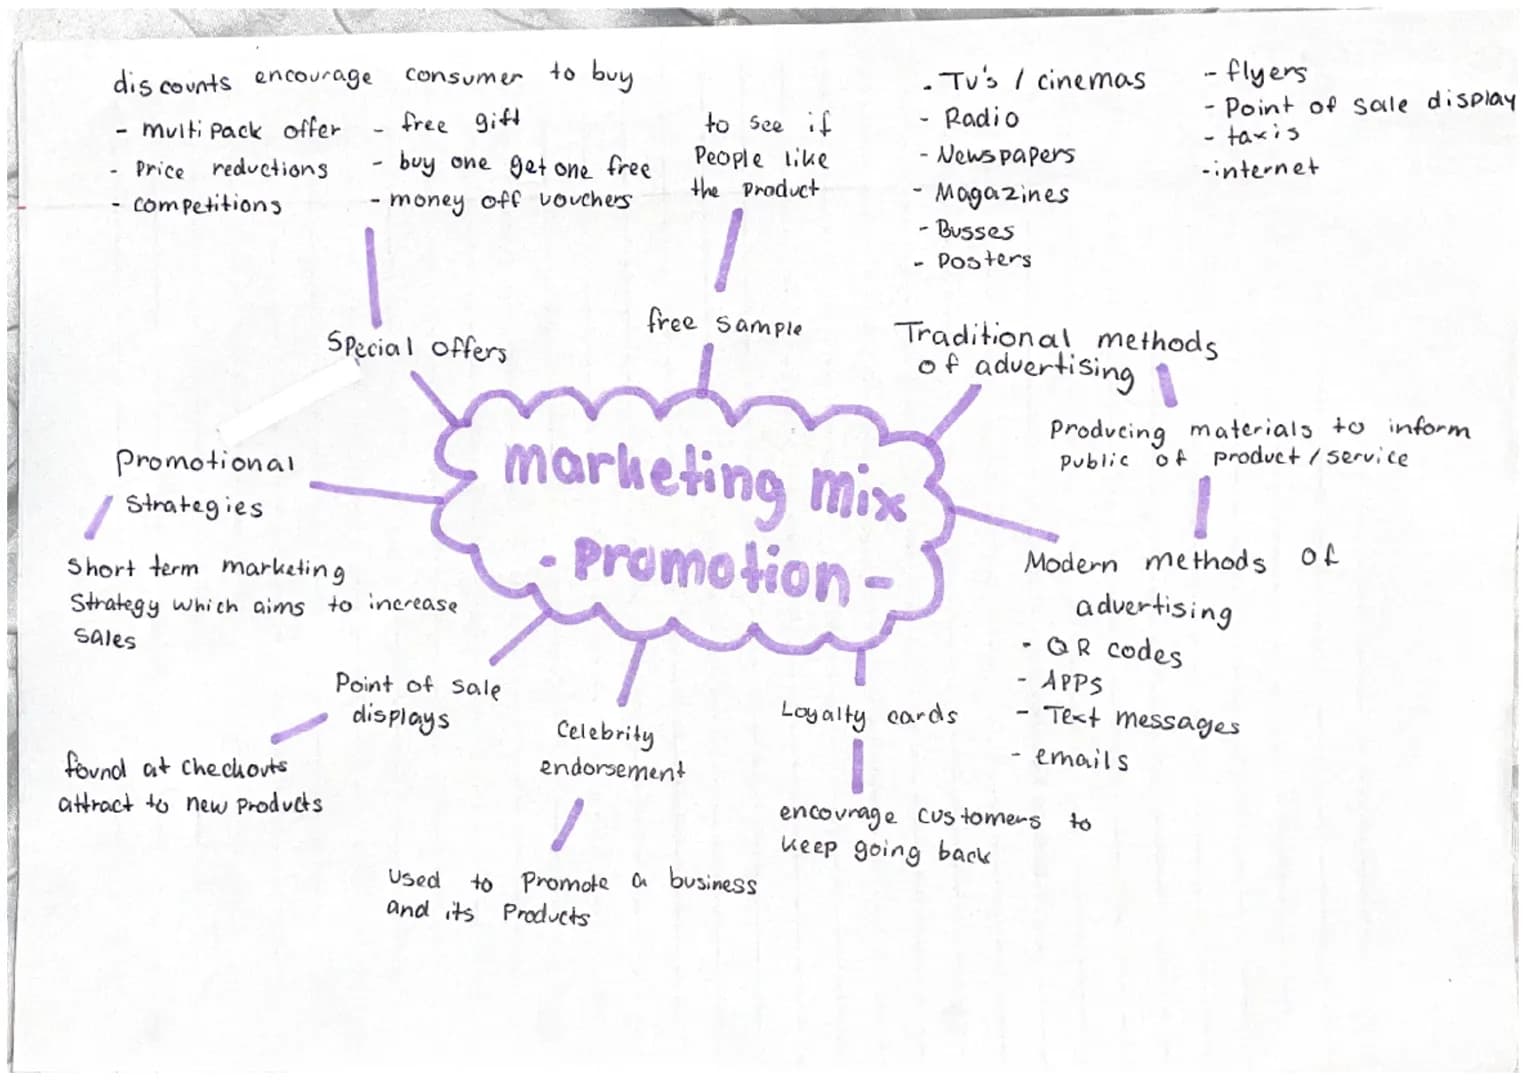 discounts encourage consumer to buy
- multipack offer
- Price reductions
- competitions
- free gift
- buy one get one free
- money off vouchers
to see if
People like
the product
. Tv's / cinemas
- Radio
- Newspapers
- Magazines
- Busses
- Posters
- flyers
- Point of sale display
- taxis
- internet
Special offers
free sample
Traditional methods
of advertising
Producing materials to inform
public of product / service
marketing mix
- Promotion -
Promotional
Strategies
Short term marketing
Strategy which aims to increase
sales
Modern methods of
advertising
- QR codes
- APPS
- Text messages
- emails
Point of sale
displays
found at checkouts
attract to new products
Celebrity
endorsement
Used to Promote a business
and its Products
Loyalty cards
encourage customers to
keep going back